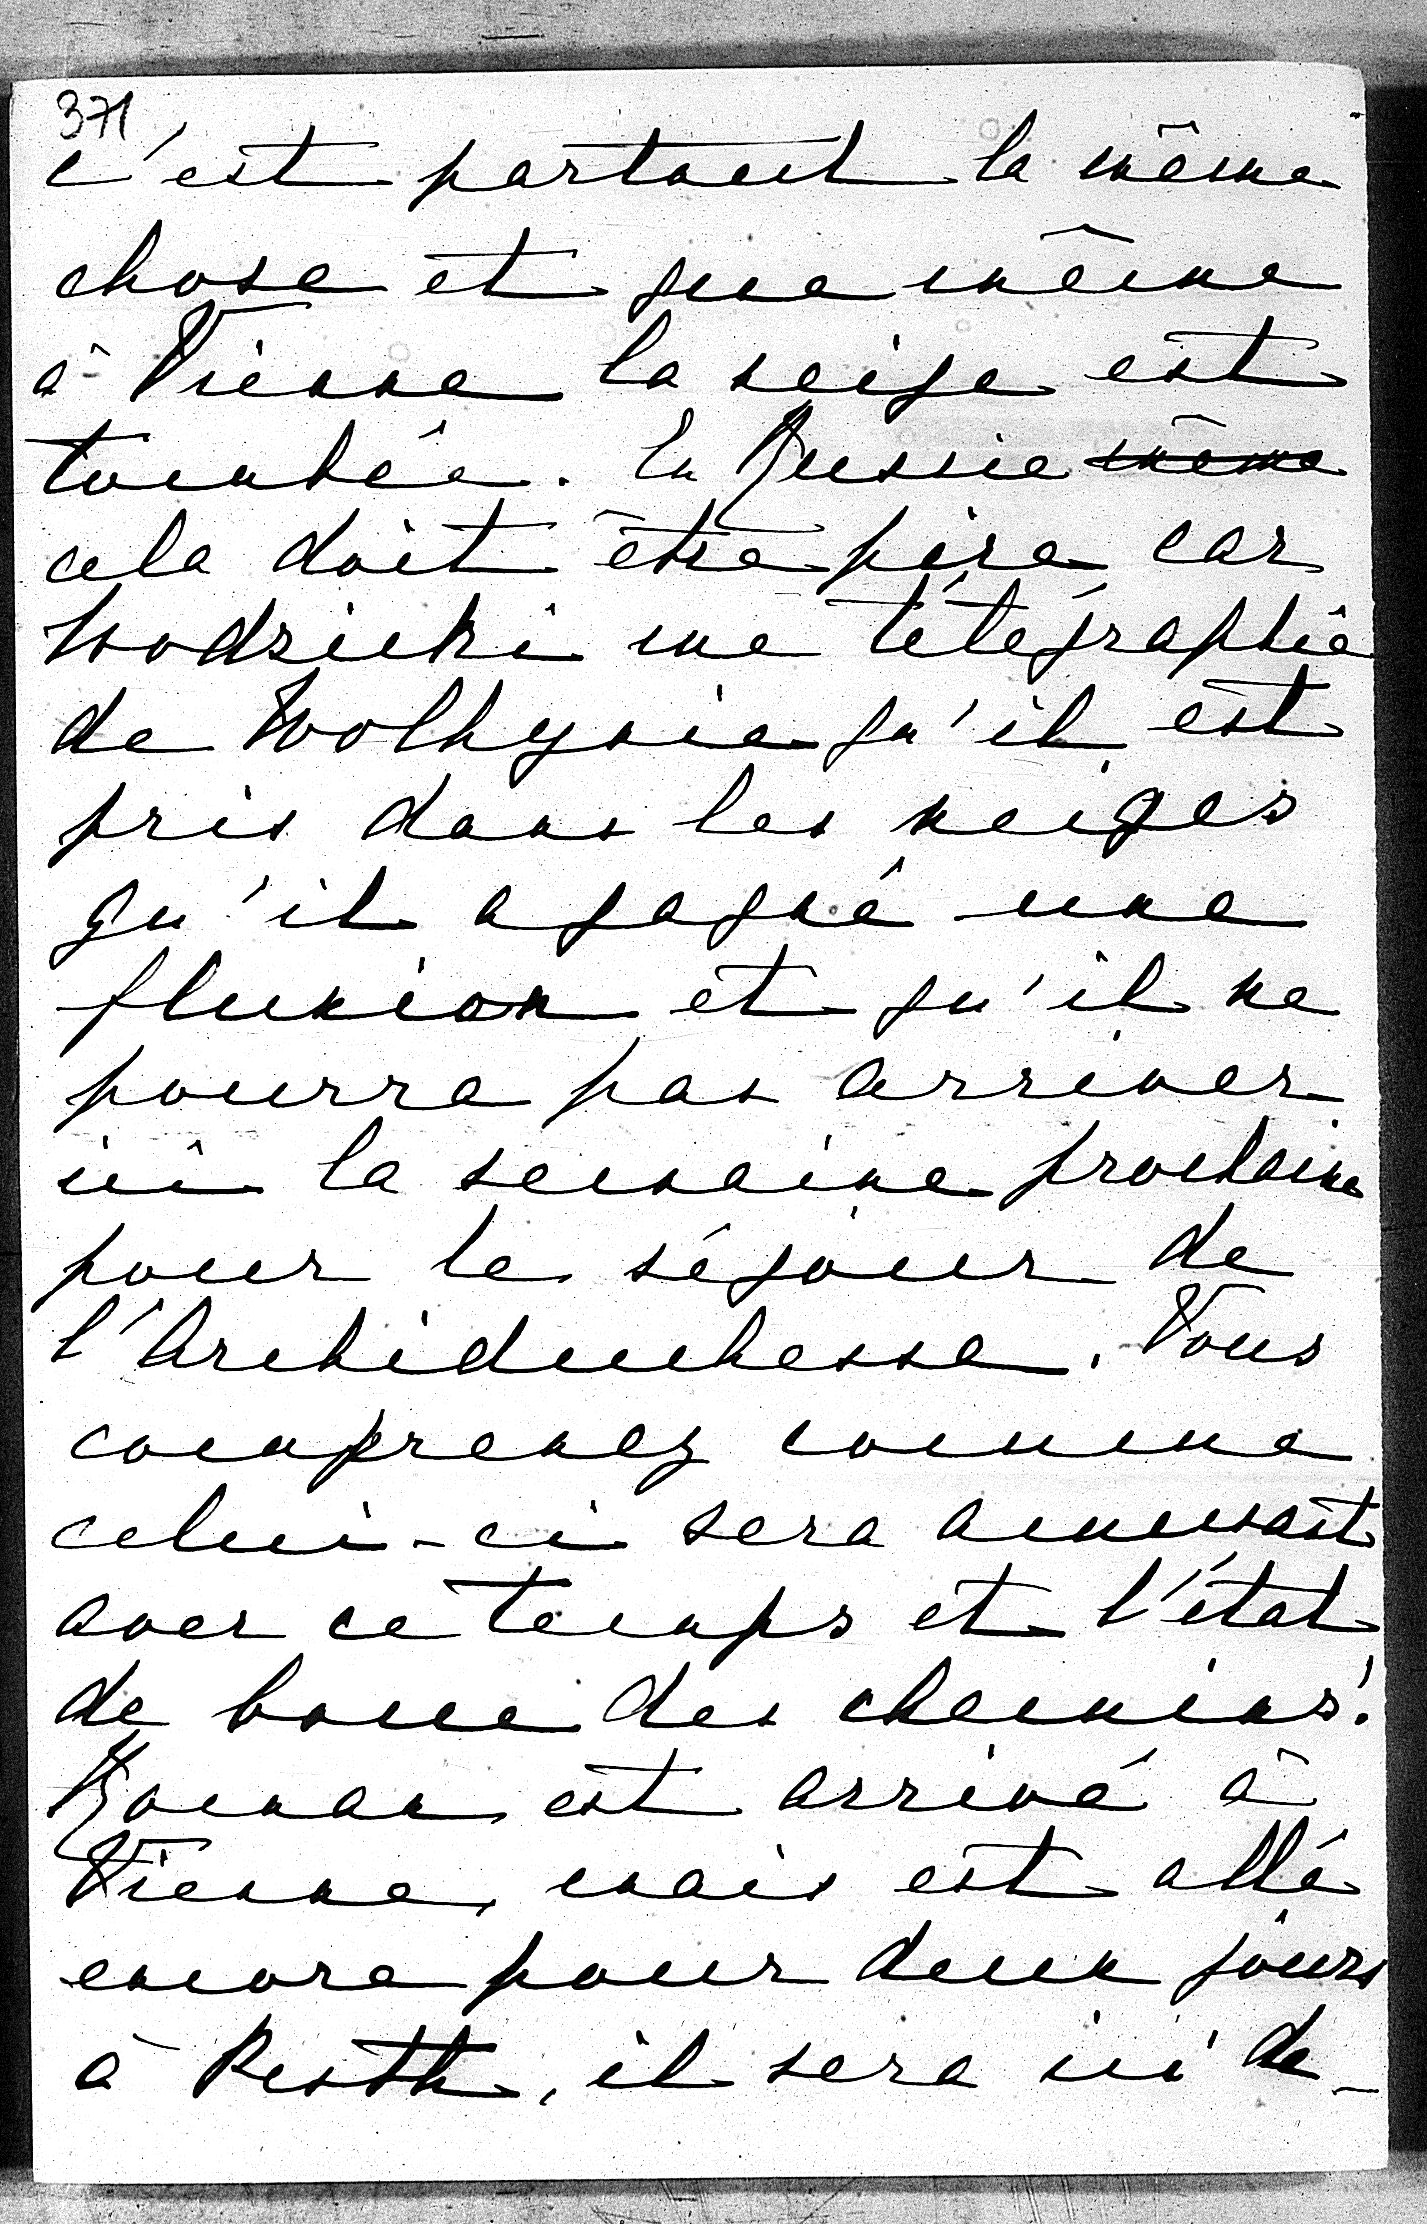 371
c'est partout la même
chose et que même
à Vienne la neige est
tombée. En Russie ~~même~~
cela doit être pire car
Wodzicki me télégraphie
de Wolhynie qu'il est
pris dans les neiges
qu'il a gagné une
fluxion et qu'il ne
pourra pas arriver
ici la semaine prochaine
pour le séjour de
l'Archiduchesse. Vous
comprenez comme
celui-ci sera amusant
avec ce temps et l'état
de boue des chemins!
Roman est arrivé à
Vienne, mais est allé
encore pour deux jours
à Pesth, il sera ici de-